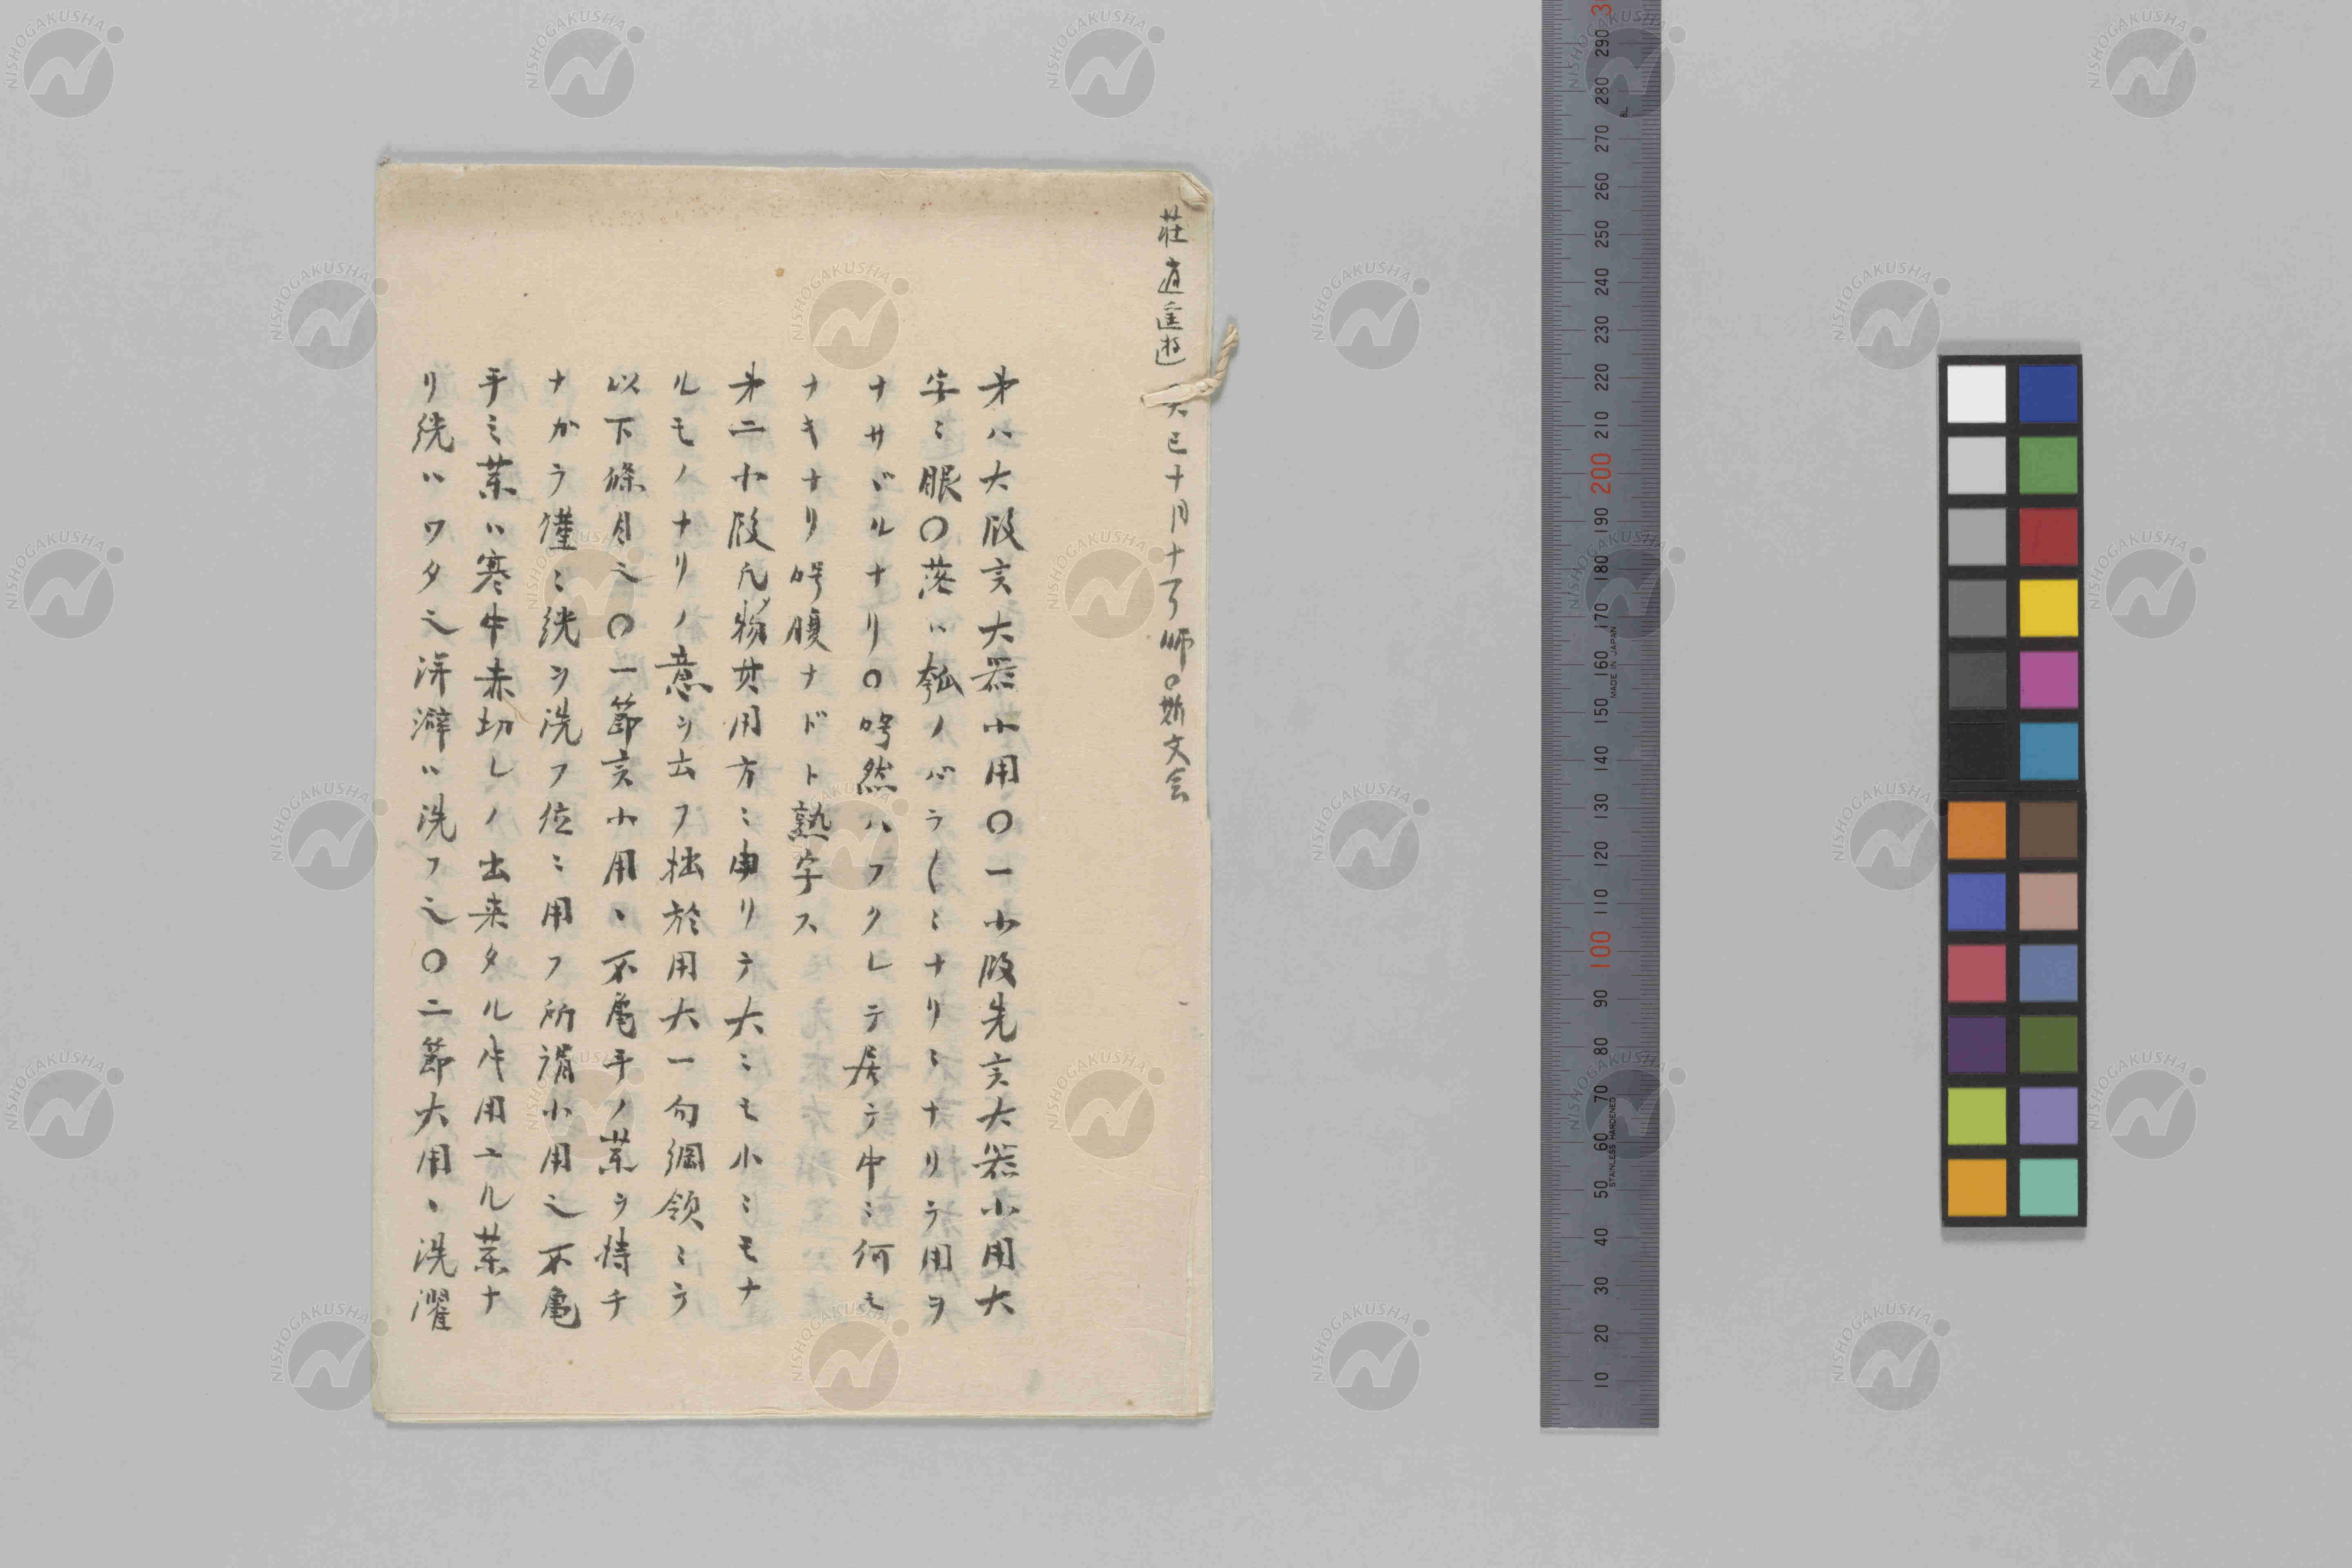 莊逍遙遊 癸巳十月十了 師〇斯文会
第八大段言大器小用〇一小段先言大器小用大
字ニ眼〇落ハ瓠ノバラ〱ニナリニナリテ用ヲ
ナサヾルナリ〇呺然ハフクレテ居テ中ニ何モ
ナキナリ呺腹ナドト熟字ス
第二小段凡物其用方ニ由リテ大ニモ小ニモナ
ルモノナリノ意ヲ云フ拙於用大一句綱領ニテ
以下條目也〇一節言小用、不龜手ノ薬ヲ持チ
ナカラ僅ニ絖ヲ洗フ位ニ用フ所謂小用也不龜
手ニ薬ハ寒中赤切レノ出来タル片用ユル薬ナ
リ絖ハワタ也洴澼ハ洗フ也〇二節大用、洗濯
NISHOGAKUSHA
300
290
280
270
260
250
240
230
220
210
200
190
180
170
160
150
140
130
120
110
100
90
80
70
60
50
40
30
20
10
MADE IN JAPAN
STAINLESS HARDENED